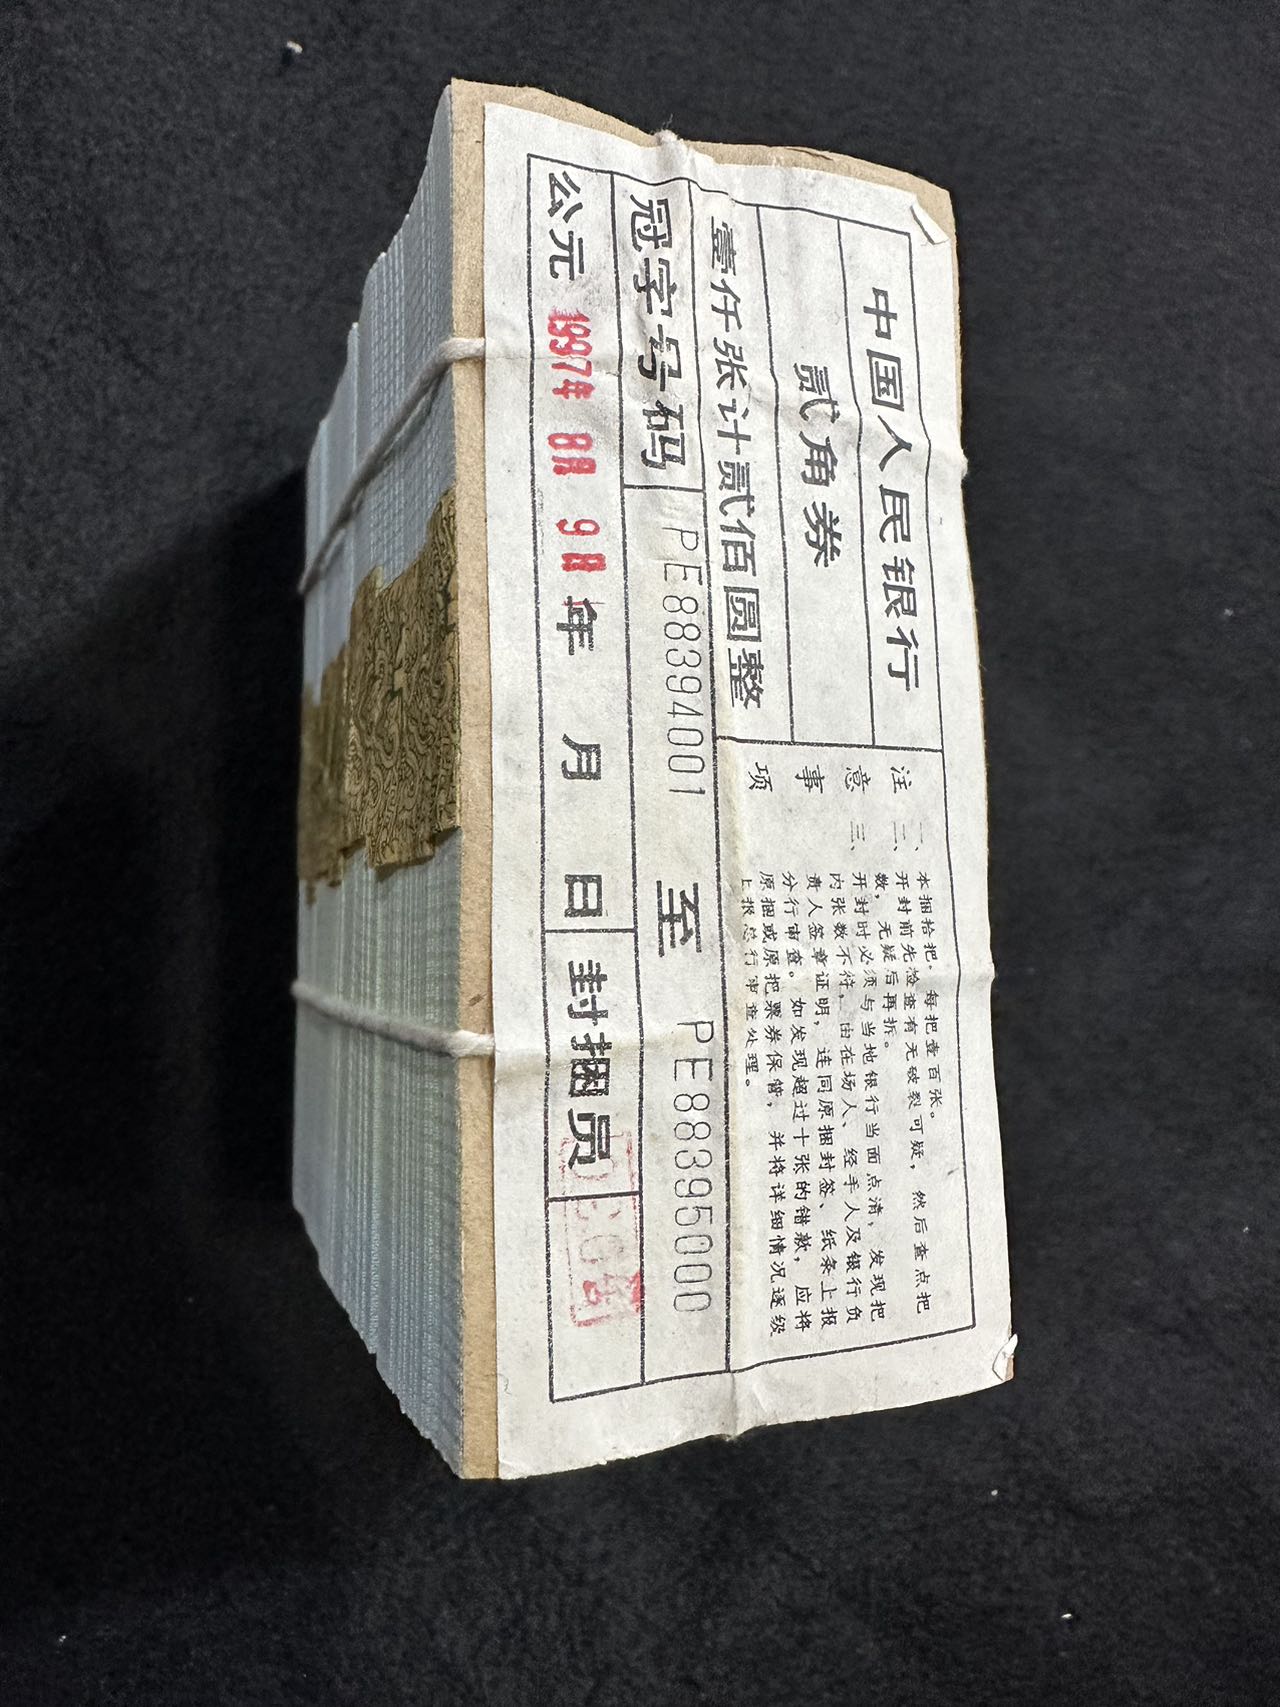 中国人民银行
贰角券
壹仟张计贰佰圆整
注意事项
一、本捆拾把，每把壹百张。
二、开封前先检查有无破裂可疑，然后查点把
数，无疑后再拆。
三、开封时必须与当地银行当面点清，发现把
内张数不符，由在场人、经手人及银行负
责人签章证明，连同原捆封签、纸条上报
分行审查。如发现超过十张的错款，应将
原捆或原把票券保管，并将详细情况逐级
上报总行审查处理。
冠字号码 PE88394001 至 PE88395000
公元 1997年 8月 9日 年 月 日 封捆员